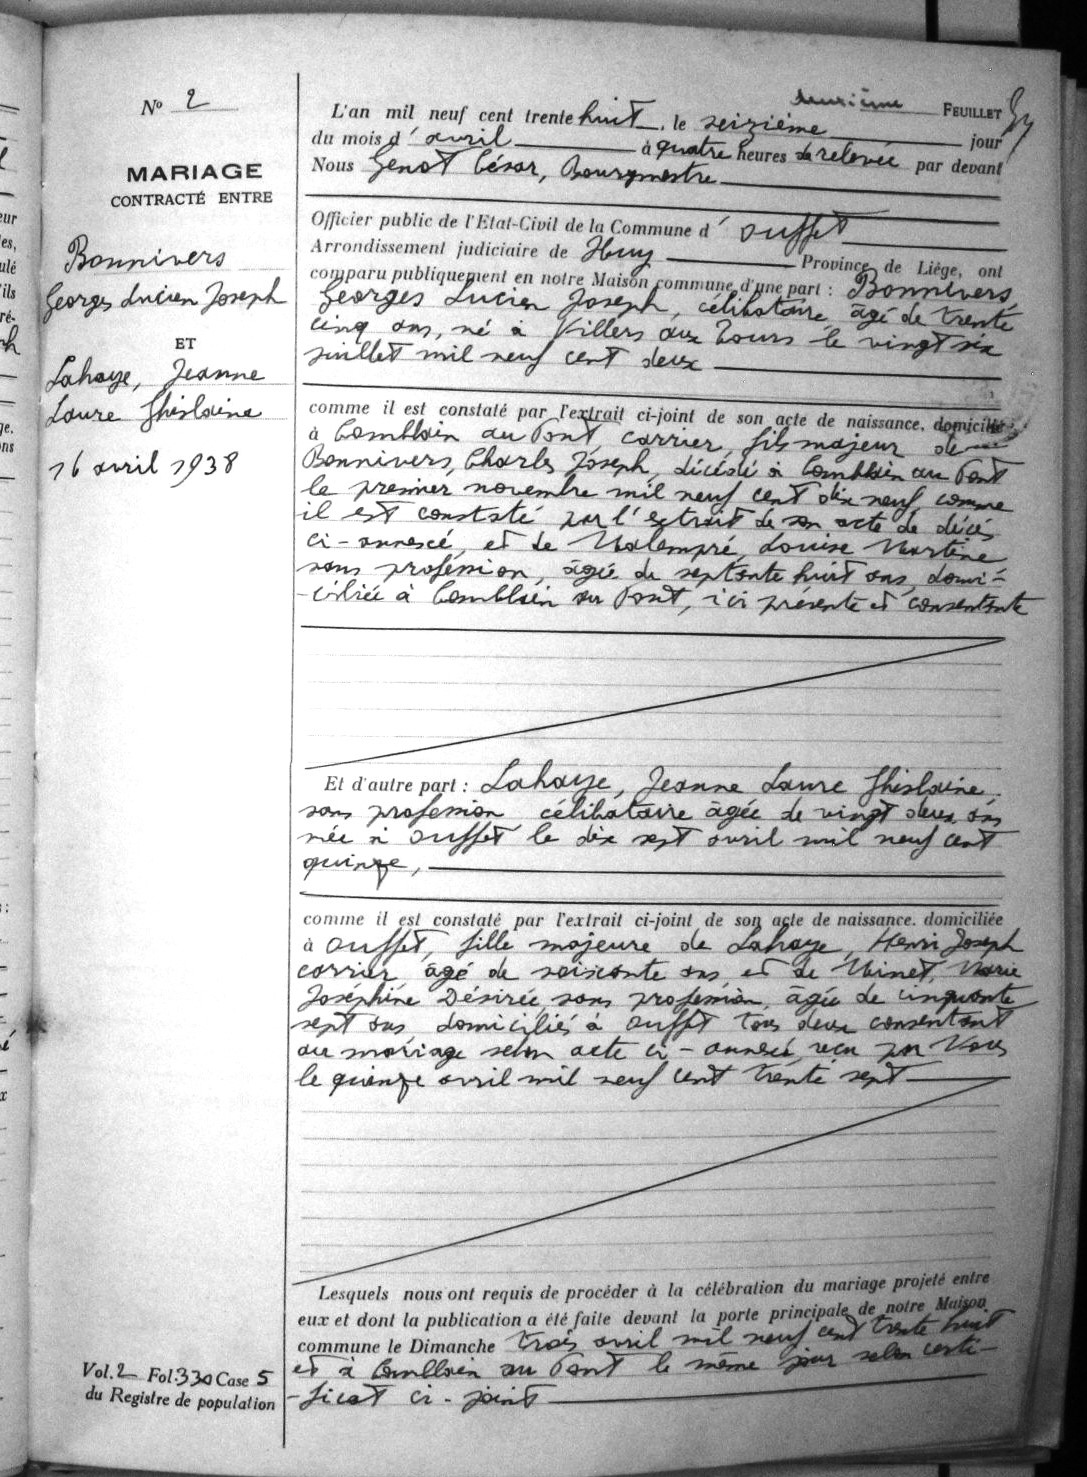 deuxième FEUILLET
N° 2
MARIAGE
CONTRACTÉ ENTRE
Bonnivers
Georges Lucien Joseph
ET
Lahaye, Jeanne
Laure Ghislaine
16 avril 1938
Vol. 2 Fol. 330 Case 5
du Registre de population
L'an mil neuf cent trente huit, le seizième jour
du mois d'avril à quatre heures de relevée par devant
Nous Genot César, Bourgmestre
Officier public de l'Etat-Civil de la Commune d' Ouffet
Arrondissement judiciaire de Huy Province de Liége, ont
comparu publiquement en notre Maison commune d'une part : Bonnivers
Georges Lucien Joseph, célibataire âgé de trente
cinq ans, né à Villers aux Tours le vingt six
juillet mil neuf cent deux
comme il est constaté par l'extrait ci-joint de son acte de naissance, domicilié
à Comblain au Pont carrier, fils majeur de
Bonnivers, Charles Joseph, décédé à Comblain au Pont
le premier novembre mil neuf cent dix neuf comme
il est constaté par l'extrait de son acte de décès
ci-annexé, et de Malempré, Louise Martine
sans profession, âgée de septante huit ans, domi-
-ciliée à Comblain au Pont, ici présente et consentante
Et d'autre part : Lahaye, Jeanne Laure Ghislaine
sans profession célibataire âgée de vingt deux ans
née à Ouffet le dix sept avril mil neuf cent
quinze,
comme il est constaté par l'extrait ci-joint de son acte de naissance. domiciliée
à Ouffet, fille majeure de Lahaye, Henri Joseph
carrier âgé de soixante ans et de Minet, Marie
Joséphine Désirée, sans profession, âgée de cinquante
sept ans domiciliés à Ouffet tous deux consentant
au mariage selon acte ci-annexé, reçu par Nous
le quinze avril mil neuf cent trente sept
Lesquels nous ont requis de procéder à la célébration du mariage projeté entre
eux et dont la publication a été faite devant la porte principale de notre Maison
commune le Dimanche trois avril mil neuf cent trente huit
et à Comblain au Pont le même jour selon certi-
-ficat ci-joint